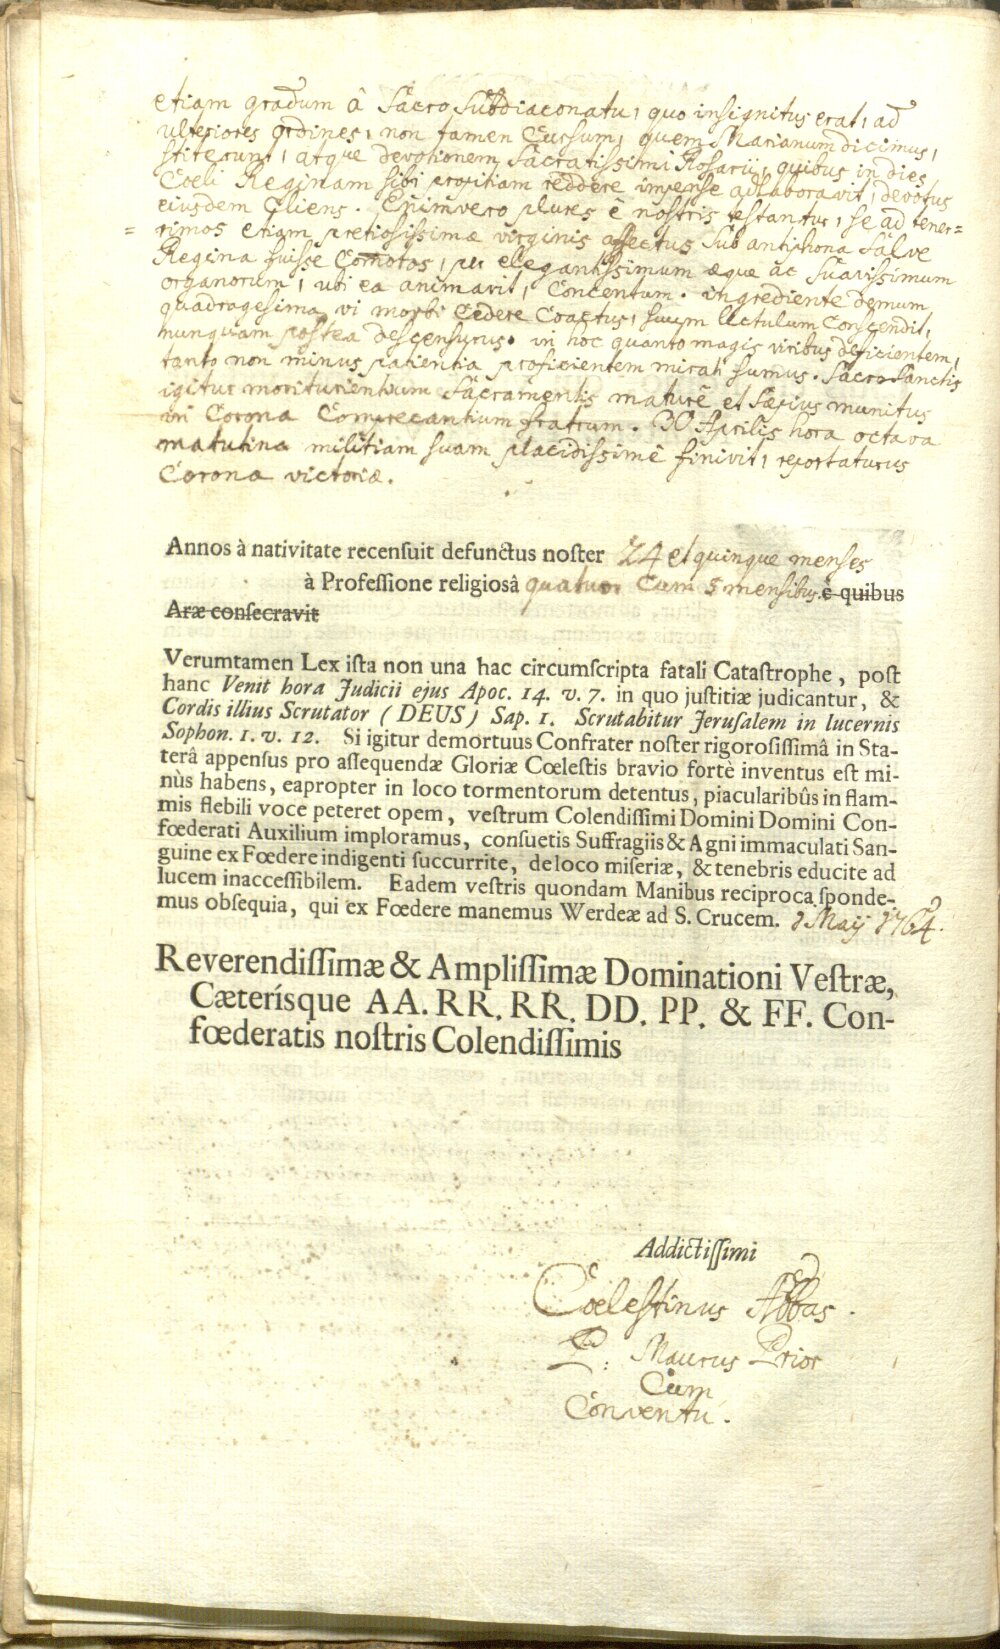 etiam gradum â Sacro Subdiaconatu, quo insignitus erat, ad
ulteriores ordines, non tamen Cursum, quem Marianum dicimus,
stiterunt, atque devotionem Sacratissimi Rosarii, quibus in dies
Coeli Reginam sibi propitiam reddere impense adlaboravit, devotus
eiusdem Cliens. Enimvero plures è nostris testantur, se ad tener=
= rimos etiam pretiosissimæ virginis affectus sub antiphona Salve
Regina fuisse Comotos, per elegantissimum æque ac suavissimum
organorum, ubi ea animavit, Concentum. ingrediente demum
quadragesima vi morbi Cedere Coactus, suum lectulum Conscendit,
nunquam postea descensurus. in hoc quanto magis viribus deficientem,
tanto non minus patientia proficientem mirati sumus. Sacro Sanctis
igitur moriturientium Sacramentis maturè et sæpius munitus
in Corona Comprecantium fratrum. 30 Aprilis hora octava
matutina militiam suam placidissimè finivit, reportaturus
Coronæ victoriæ.
Annos à nativitate recensuit defunctus noster 24 et quinque menses
à Professione religiosâ quatuor Cum 5 mensibus. è quibus
Aræ consecravit
Verumtamen Lex ista non una hac circumscripta fatali Catastrophe, post
hanc Venit hora Judicii ejus Apoc. 14. v. 7. in quo justitiæ judicantur, &
Cordis illius Scrutator (DEUS) Sap. 1. Scrutabitur Jerusalem in lucernis
Sophon. 1. v. 12. Si igitur demortuus Confrater noster rigorosissimâ in Sta-
terâ appensus pro assequendæ Gloriæ Cœlestis bravio fortè inventus est mi-
nùs habens, eapropter in loco tormentorum detentus, piacularibûs in flam-
mis flebili voce peteret opem, vestrum Colendissimi Domini Domini Con-
fœderati Auxilium imploramus, consuetis Suffragiis & Agni immaculati San-
guine ex Fœdere indigenti succurrite, de loco miseriæ, & tenebris educite ad
lucem inaccessibilem. Eadem vestris quondam Manibus reciproca sponde-
mus obsequia, qui ex Fœdere manemus Werdeæ ad S. Crucem. 1 Maij 1764.
Reverendissimæ & Amplissimæ Dominationi Vestræ,
Cæterísque AA. RR. RR. DD. PP. & FF. Con-
fœderatis nostris Colendissimis
Addictissimi
Coelestinus Abbas.
P: Maurus Prior
Cum
Conventu.